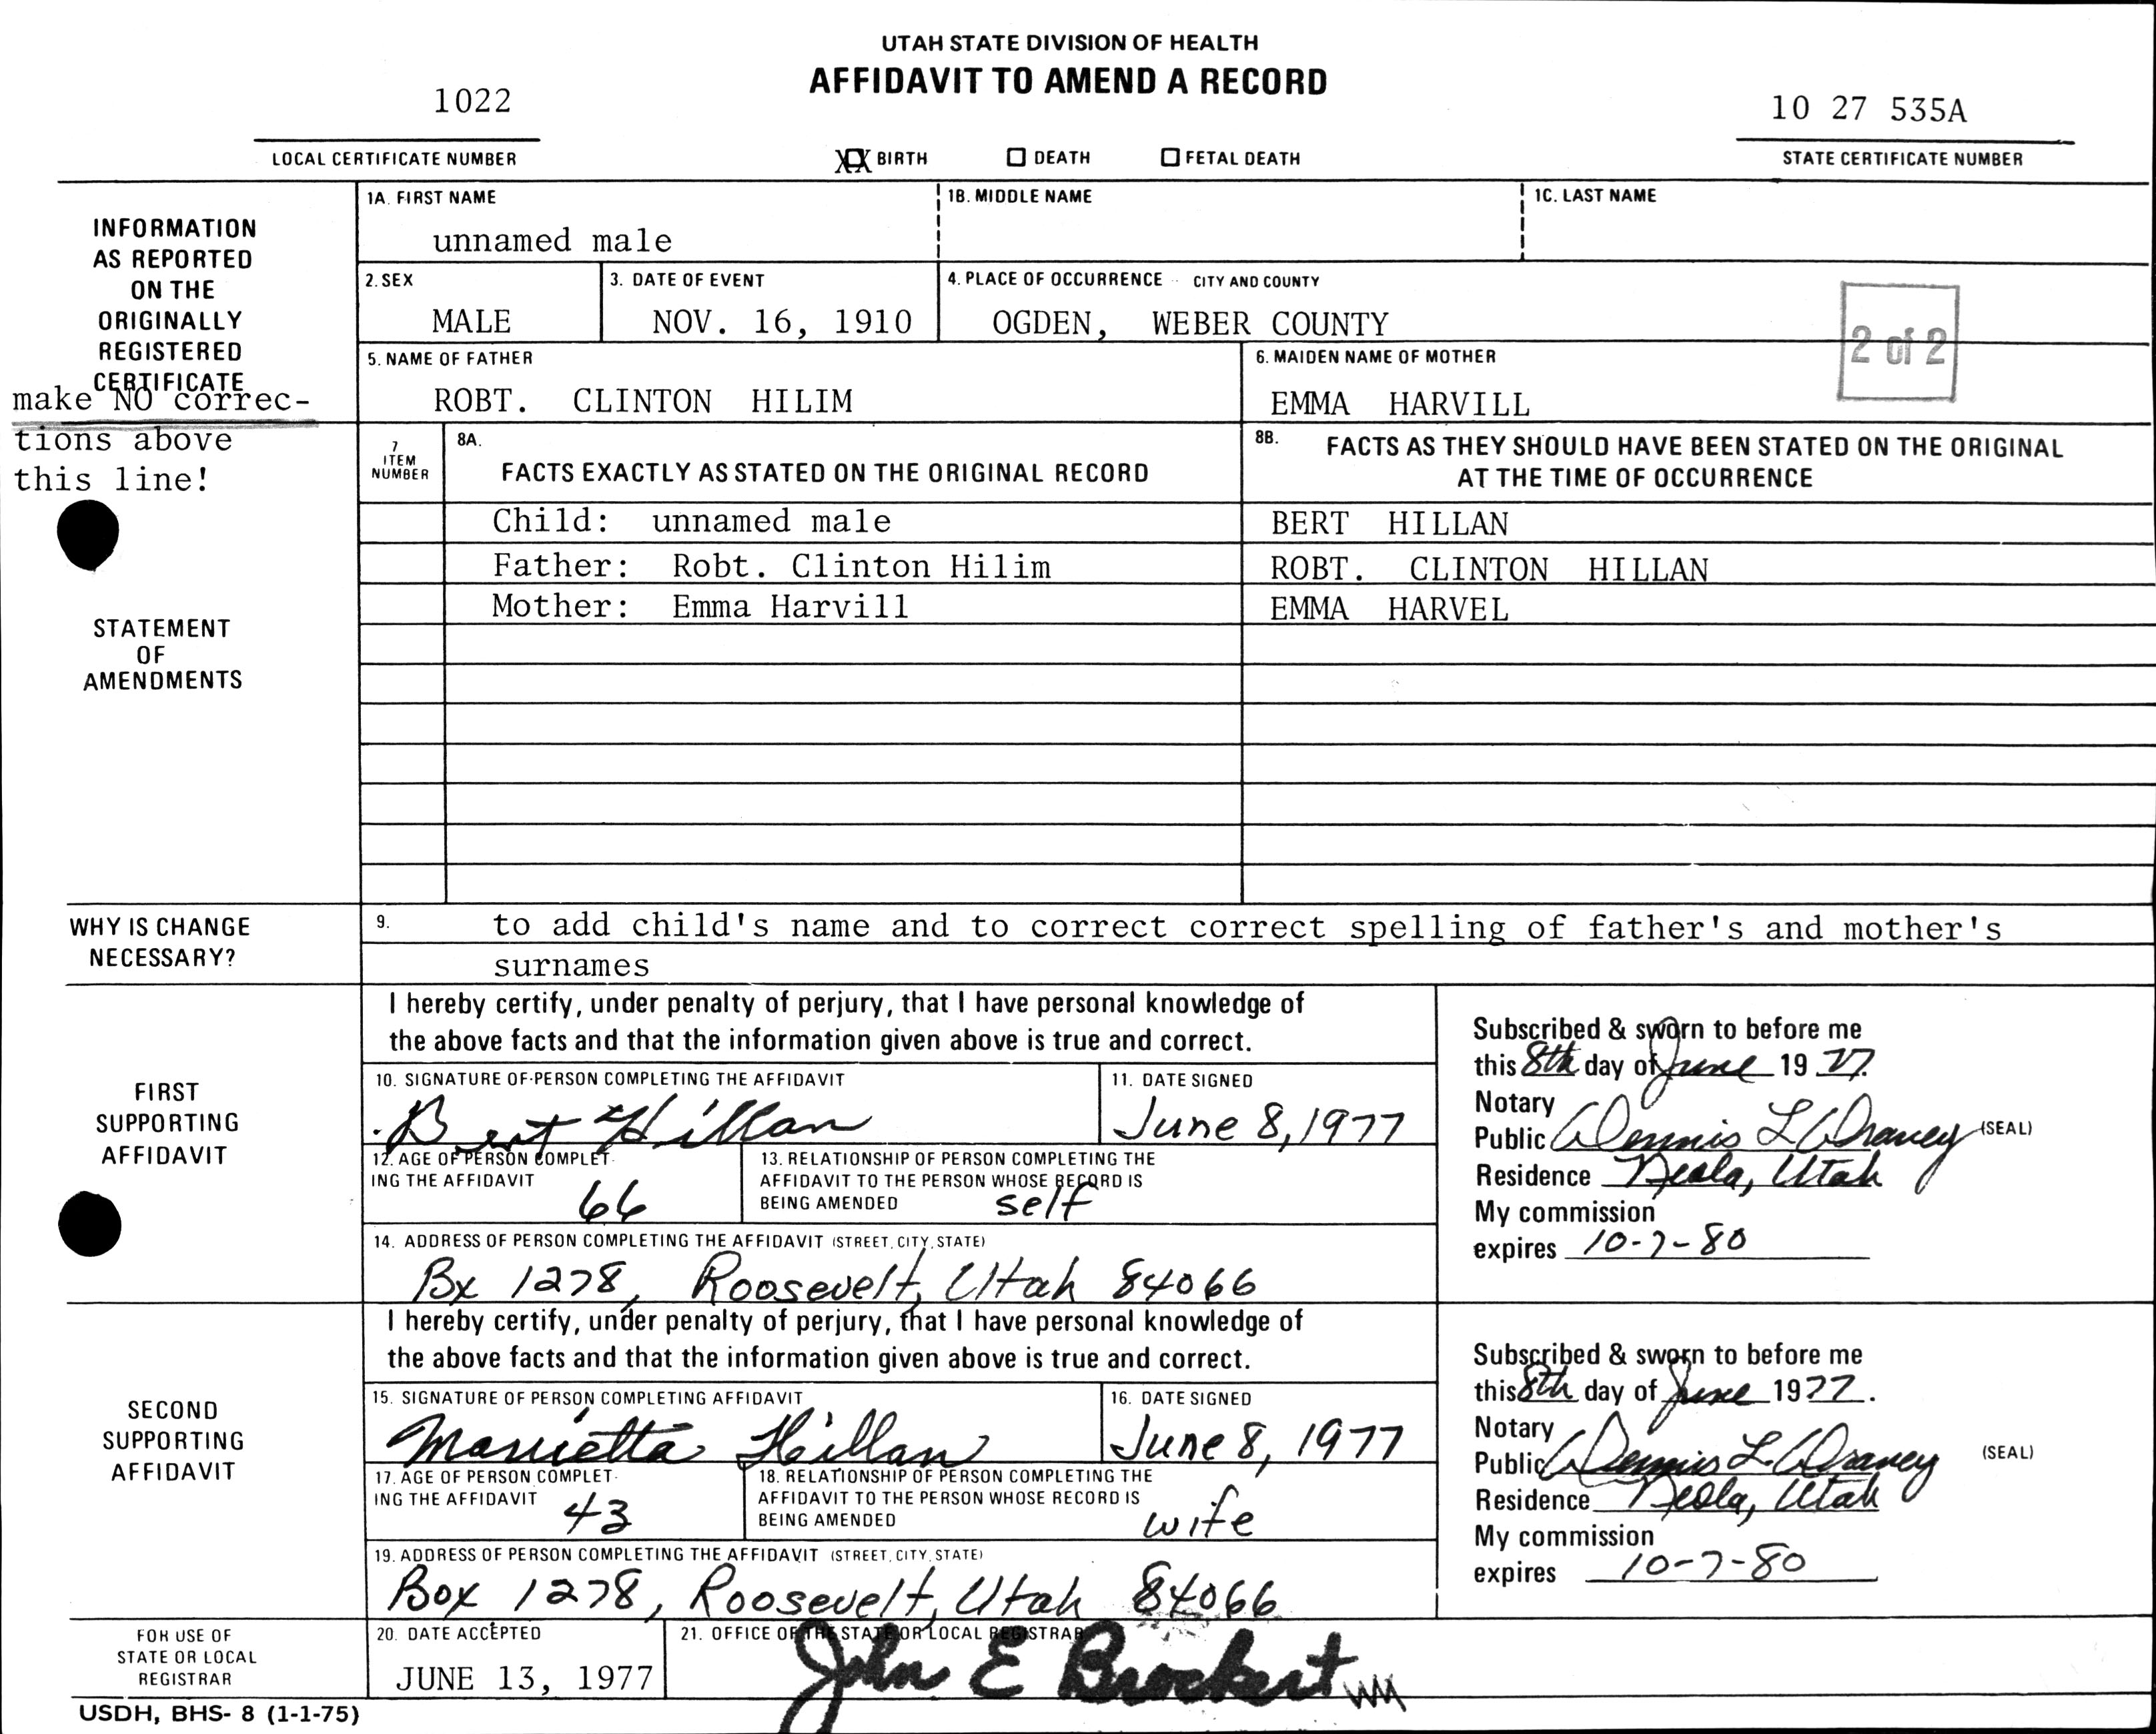 UTAH STATE DIVISION OF HEALTH
AFFIDAVIT TO AMEND A RECORD
1022
10 27 535A
LOCAL CERTIFICATE NUMBER
XX BIRTH
DEATH
FETAL DEATH
STATE CERTIFICATE NUMBER
INFORMATION
AS REPORTED
ON THE
ORIGINALLY
REGISTERED
CERTIFICATE
make NO correc-
tions above
this line!
1A. FIRST NAME
unnamed male
1B. MIDDLE NAME
1C. LAST NAME
2. SEX
MALE
3. DATE OF EVENT
NOV. 16, 1910
4. PLACE OF OCCURRENCE - CITY AND COUNTY
OGDEN, WEBER COUNTY
2 of 2
5. NAME OF FATHER
ROBT. CLINTON HILIM
6. MAIDEN NAME OF MOTHER
EMMA HARVILL
STATEMENT
OF
AMENDMENTS
7
ITEM
NUMBER
8A.
FACTS EXACTLY AS STATED ON THE ORIGINAL RECORD
8B. FACTS AS THEY SHOULD HAVE BEEN STATED ON THE ORIGINAL
AT THE TIME OF OCCURRENCE
Child: unnamed male
BERT HILLAN
Father: Robt. Clinton Hilim
ROBT. CLINTON HILLAN
Mother: Emma Harvill
EMMA HARVEL
WHY IS CHANGE
NECESSARY?
9. to add child's name and to correct correct spelling of father's and mother's
surnames
FIRST
SUPPORTING
AFFIDAVIT
I hereby certify, under penalty of perjury, that I have personal knowledge of
the above facts and that the information given above is true and correct.
10. SIGNATURE OF PERSON COMPLETING THE AFFIDAVIT
Bert Hillan
11. DATE SIGNED
June 8, 1977
12. AGE OF PERSON COMPLET-
ING THE AFFIDAVIT
66
13. RELATIONSHIP OF PERSON COMPLETING THE
AFFIDAVIT TO THE PERSON WHOSE RECORD IS
BEING AMENDED self
14. ADDRESS OF PERSON COMPLETING THE AFFIDAVIT (STREET, CITY, STATE)
Bx 1278, Roosevelt, Utah 84066
Subscribed & sworn to before me
this 8th day of June 1977.
Notary
Public Dennis L Draney (SEAL)
Residence Neola, Utah
My commission
expires 10-7-80
SECOND
SUPPORTING
AFFIDAVIT
I hereby certify, under penalty of perjury, that I have personal knowledge of
the above facts and that the information given above is true and correct.
15. SIGNATURE OF PERSON COMPLETING AFFIDAVIT
Marrietta Hillan
16. DATE SIGNED
June 8, 1977
17. AGE OF PERSON COMPLET-
ING THE AFFIDAVIT
43
18. RELATIONSHIP OF PERSON COMPLETING THE
AFFIDAVIT TO THE PERSON WHOSE RECORD IS
BEING AMENDED wife
19. ADDRESS OF PERSON COMPLETING THE AFFIDAVIT (STREET, CITY, STATE)
Box 1278, Roosevelt, Utah 84066
Subscribed & sworn to before me
this 8th day of June 1977.
Notary
Public Dennis L. Draney (SEAL)
Residence Neola, Utah
My commission
expires 10-7-80
FOR USE OF
STATE OR LOCAL
REGISTRAR
20. DATE ACCEPTED
JUNE 13, 1977
21. OFFICE OF THE STATE OR LOCAL REGISTRAR
John E Brockert WM
USDH, BHS- 8 (1-1-75)